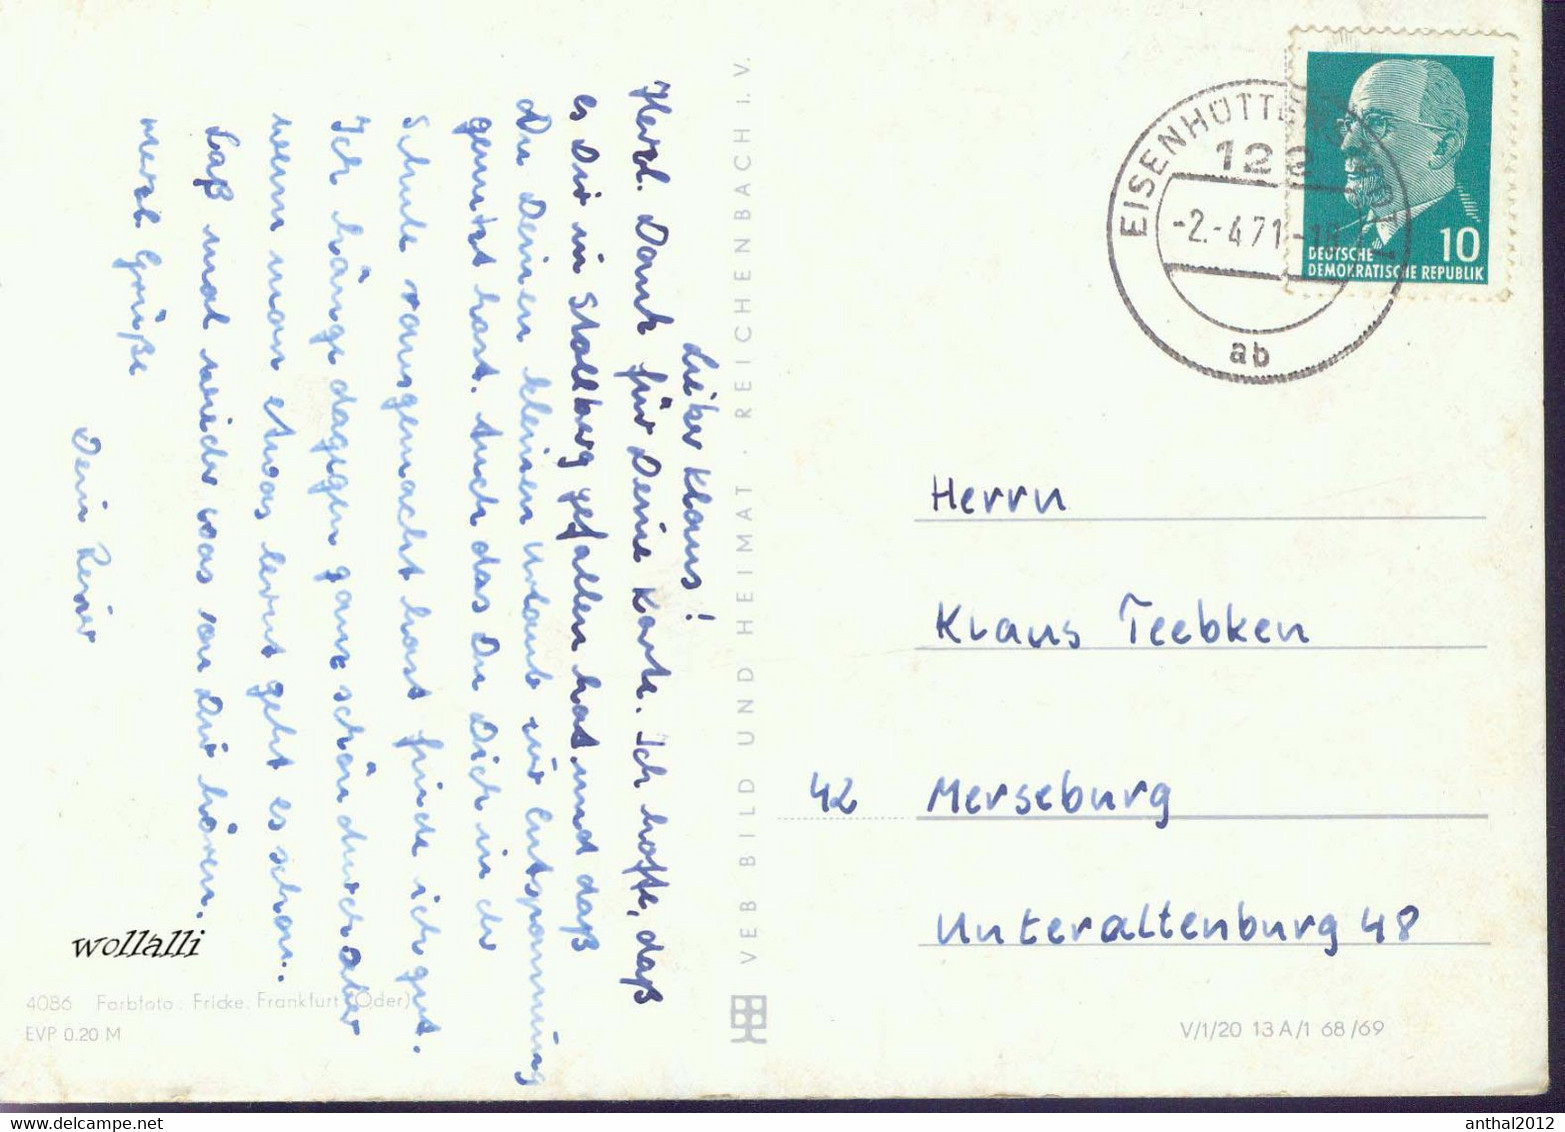 Lieber Klaus!
Herzl. Dank für Deine Karte. Ich hoffe, daß
es Dir in Stollburg gefallen hat, und daß
Du Deinen kleinen Urlaub zur Entspannung
genutzt hast. Auch das Du Dich in der
Schule rausgemacht hast finde ich gut.
Ich hänge dagegen ganz schön durch aber
wenn man etwas lernt geht es schon.
Laß mal wieder was von Dir hören.
Grüße
Dein
VEB BILD UND HEIMAT · REICHENBACH I. V.
EISENHÜTTENSTADT 1
122
-2.-4.71
ab
10
DEUTSCHE
DEMOKRATISCHE REPUBLIK
Herrn
Klaus Teebken
42 Merseburg
Unteraltenburg 48
wollalli
4086 Farbfoto: Fricke, Frankfurt (Oder)
EVP 0.20 M
V/1/20 13 A/1 68/69
anthal2012